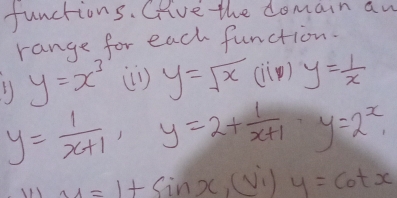 functions. Give the domain an
range for each function.
i) y = x³ (ii) y = √x (iii) y = 1/x
y = 1/(x+1), y = 2 + 1/(x+1) y = 2ˣ.
y = 1 + sin x, (vi) y = cot x